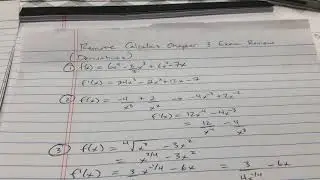 Remote Calculus Chapter 3 Exam Review
(Derivatives)
① f(x) = 6x⁴ - 2/3 x³ + 6x² - 7x
f'(x) = 24x³ - 2x² + 12x - 7
② f(x) = -4/x³ + 2/x² → -4x⁻³ + 2x⁻²
f'(x) = 12x⁻⁴ - 4x⁻³
= 12/x⁴ - 4/x³
③ f(x) = ⁴√x³ - 3x²
= x^(3/4) - 3x²
f'(x) = 3x^(-1/4) - 6x = 3 - 6x
4x^(1/4)